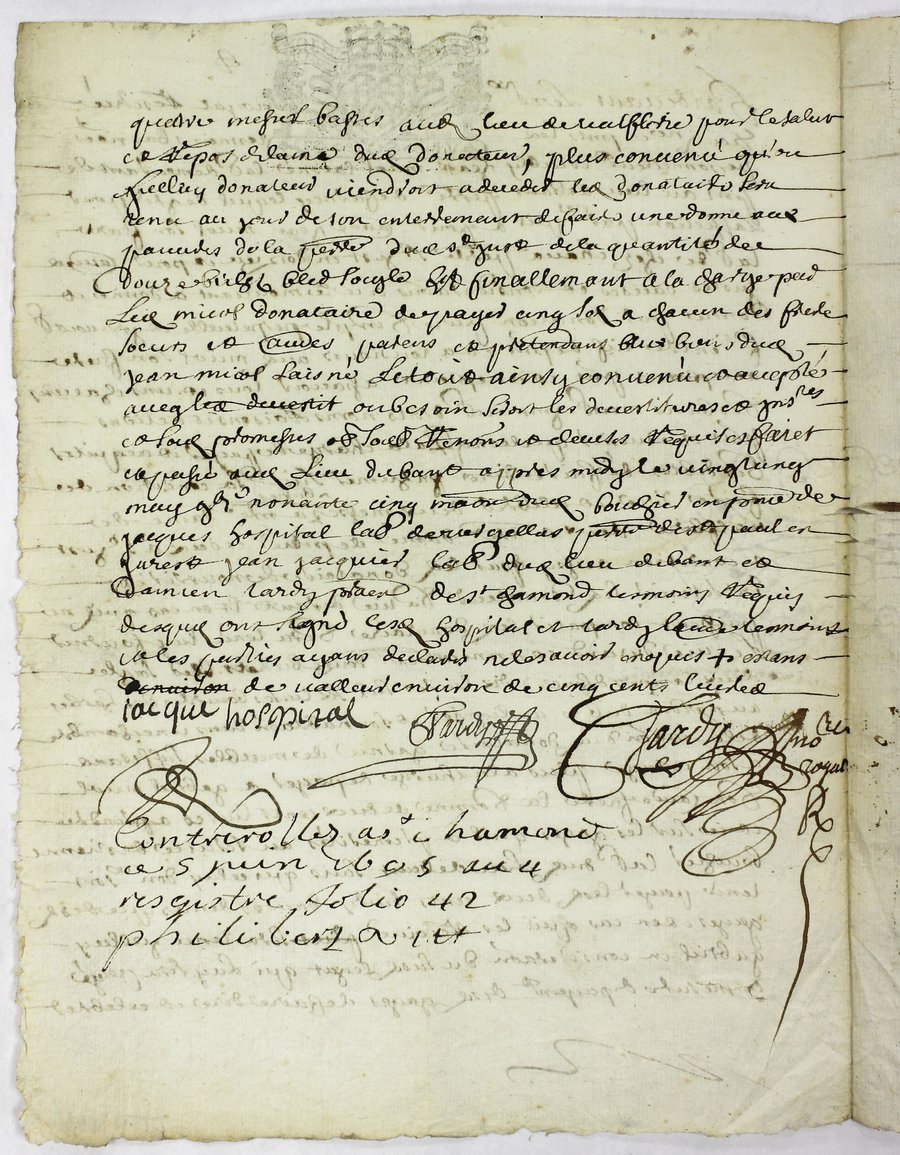 quatre messes basses aud lieu de valfleurie pour le salut
et repos de lame dud donateur, plus convenu qu'ou
led donateur viendroit a deceder led donataire sera
tenu au jour de son enterremant de faire une donne aux
pauvres de la perre dud st just de la quantité de
douze bichz bled soigle Et finallemant a la charge par
Led micol donataire de payer cinq sol a chacun des frere
soeurs et autres parens et pretendans sur biens dud
jean micol Laisné Le tout ainsy convenu et accepté
avecq les devestit ou besoin seroit les devestitures et
et soub promesses obs soubs Renons et clauses Requises faict
et passé aud Lieu du banc appres midy le vingt
may nonante cinq maison dud en pnce de
jacques hospital lab de paul en
jarest jean jacquier lab dud lieu du banc et
Damien tardy de st chamond tesmoins Requis
desquels ont signé lesd hospital et tardy tesmoins
et les parties ayans declaré ne le scavoir enquis + estans
de valleur environ de cinq cents livres
iacque hospital Tardy Tardy no re royal
Contrerollez a st chamond
ce 5 juin 1695 au 4
resgistre folio 42
philibert